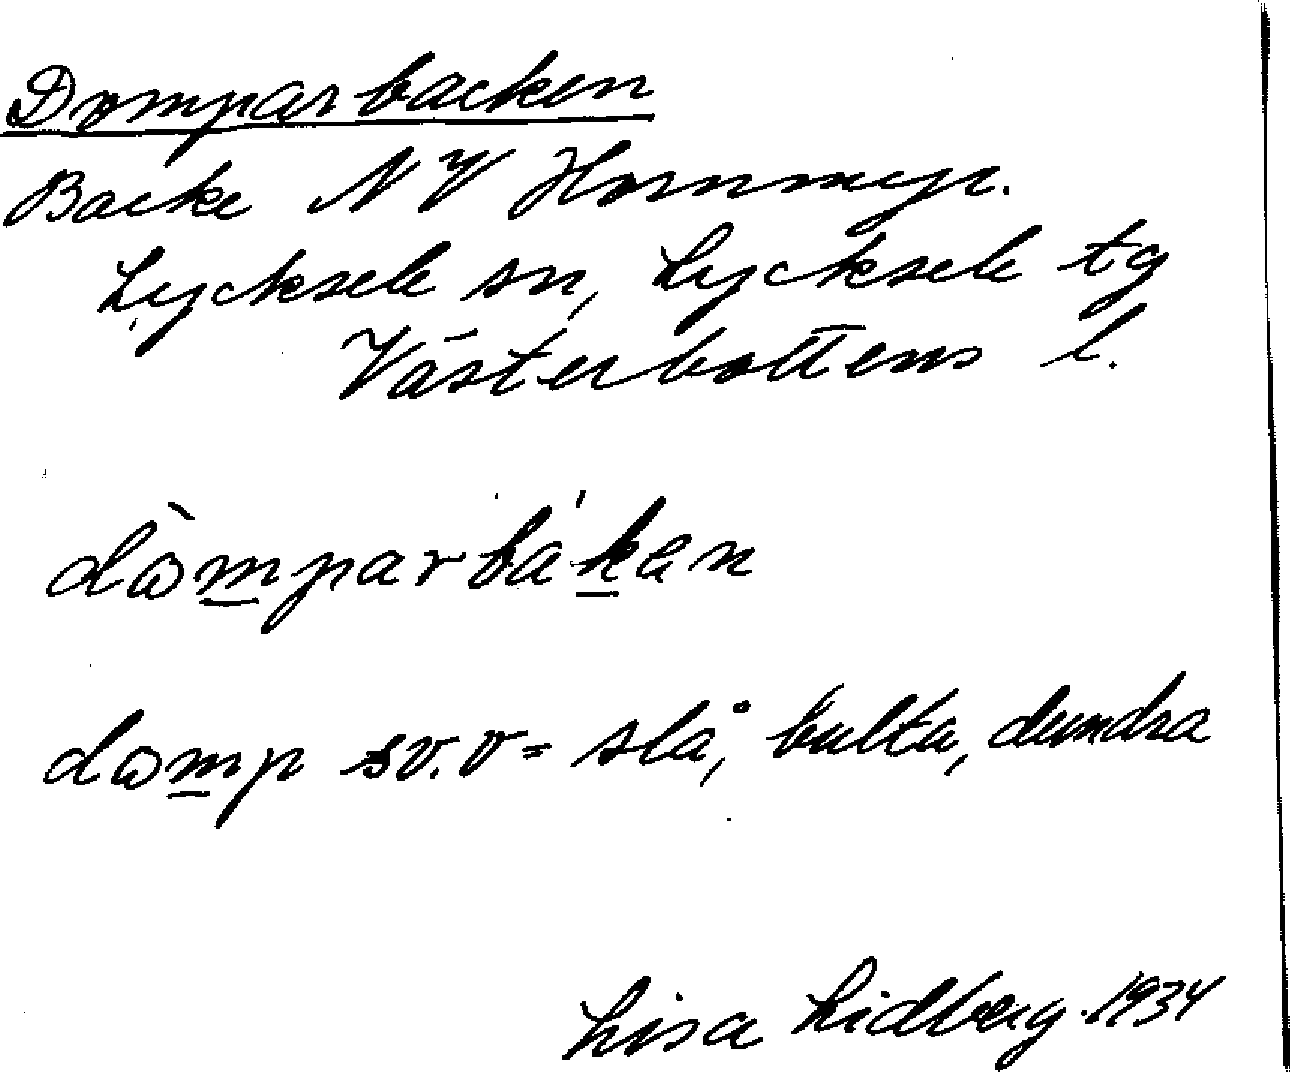 Domparbacken
Backe NV Hornmyr.
Lycksele sn, Lycksele tg
Västerbottens l.
dὼmparbákan
dωmp sv.v = slå, bulta, dundra
Lisa Lidberg. 1934